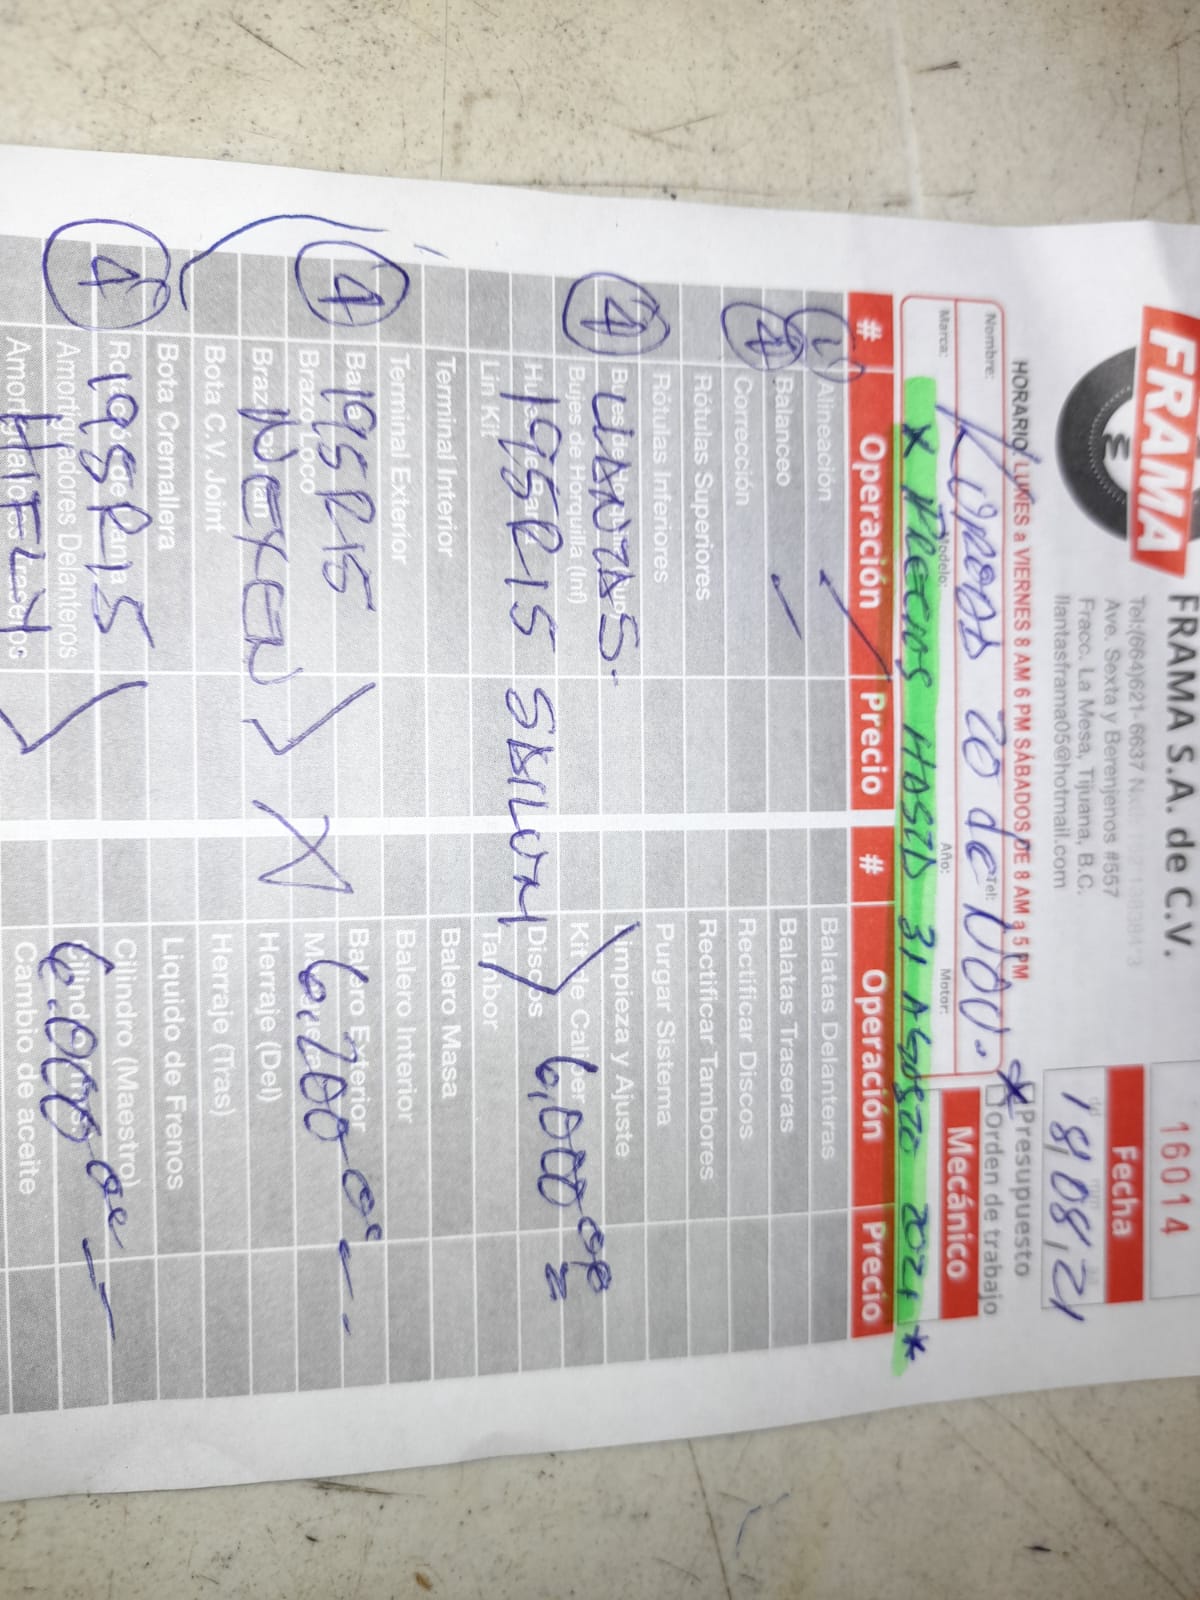 FRAMA
FRAMA S.A. de C.V.
Tel:(664)621-6637
Ave. Sexta y Berenjenos #557
Fracc. La Mesa, Tijuana, B.C.
llantasframa05@hotmail.com
16014
Fecha
18,08,21
HORARIO: LUNES a VIERNES 8 AM 6 PM SÁBADOS DE 8 AM a 5 PM
Presupuesto
Orden de trabajo
Nombre:
20 de
Tel:
Marca:
Modelo:
Año:
Motor:
Mecánico
* PRECIOS HASTA 31 AGOSTO 2021 *
# Operación Precio # Operación Precio
Alineación ✓ Balatas Delanteras
4 Balanceo ✓ Balatas Traseras
Corrección Rectificar Discos
Rótulas Superiores Rectificar Tambores
Rótulas Inferiores Purgar Sistema
4 LLANTAS. Limpieza y Ajuste
Bujes de Horquilla (Inf) Kit de Caliper
195R15 SAILUN 6,000 00
Discos
Lin Kit Tambor
Terminal Interior Balero Masa
Terminal Exterior Balero Interior
4 195R15 Balero Exterior
Brazo Loco
NEXEN 6,200 00
Herraje (Del)
Bota C.V. Joint Herraje (Tras)
Bota Cremallera Liquido de Frenos
4 195R15 Cilindro (Maestro)
Amortiguadores Delanteros
6.000 00
HIFLY
Amortiguadores Traseros Cambio de aceite